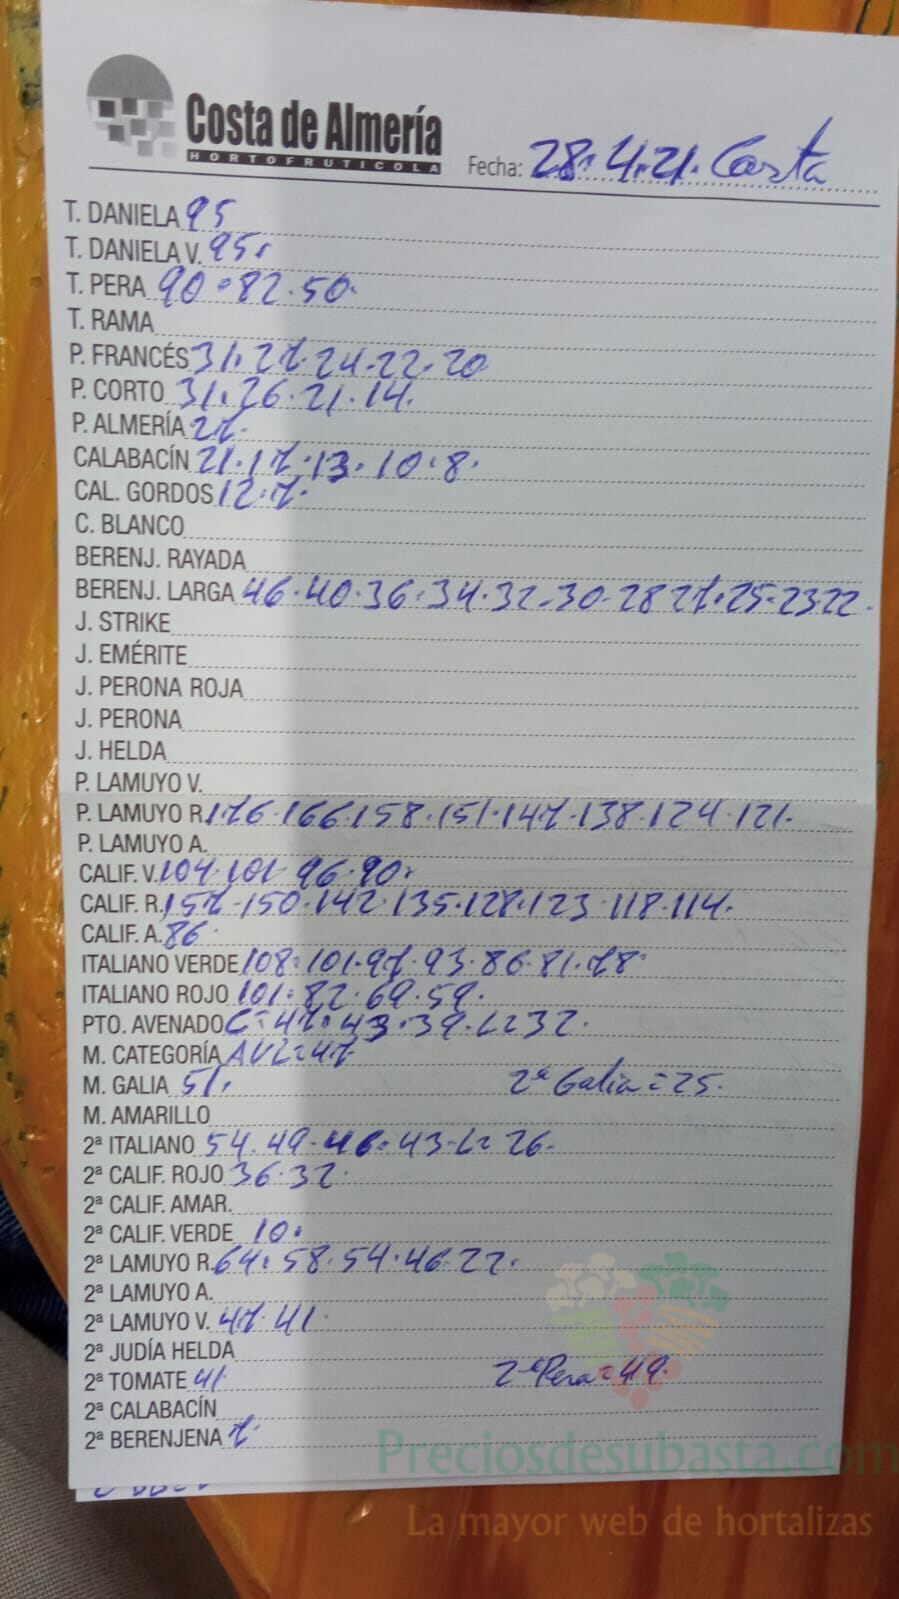 Costa de Almería
HORTOFRUTICOLA
Fecha: 28.4.21. Costa
T. DANIELA 95
T. DANIELA V. 95.
T. PERA 90.82.50.
T. RAMA
P. FRANCÉS 31.27.24.22.20
P. CORTO 31.26.21.14.
P. ALMERÍA 27.
CALABACÍN 21.17.13.10.8.
CAL. GORDOS 12.7.
C. BLANCO
BERENJ. RAYADA
BERENJ. LARGA 46.40.36.34.32.30-28 27.25-23.22.
J. STRIKE
J. EMÉRITE
J. PERONA ROJA
J. PERONA
J. HELDA
P. LAMUYO V.
P. LAMUYO R. 176.166.158.151.147.138.124.121.
P. LAMUYO A.
CALIF. V. 104.101 96.90.
CALIF. R. 157-150.142.135.128.123.118.114.
CALIF. A. 86.
ITALIANO VERDE 108.101.97.93.86.81.78.
ITALIANO ROJO 101.82.69.59.
PTO. AVENADO C=47.43.39.L=32.
M. CATEGORÍA AVL=47
M. GALIA 51. 2ª Galia=25.
M. AMARILLO
2ª ITALIANO 54.49-46.43-L=26.
2ª CALIF. ROJO 36.32.
2ª CALIF. AMAR.
2ª CALIF. VERDE 10.
2ª LAMUYO R. 64.58.54.46.22.
2ª LAMUYO A.
2ª LAMUYO V. 47.41.
2ª JUDÍA HELDA
2ª TOMATE 41. 2ªPera=49.
2ª CALABACÍN
2ª BERENJENA 7.
Preciosdesubasta.com
La mayor web de hortalizas